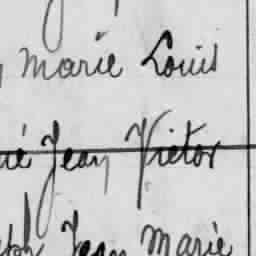 Marie Louis
né Jean Victor
Jean Marie